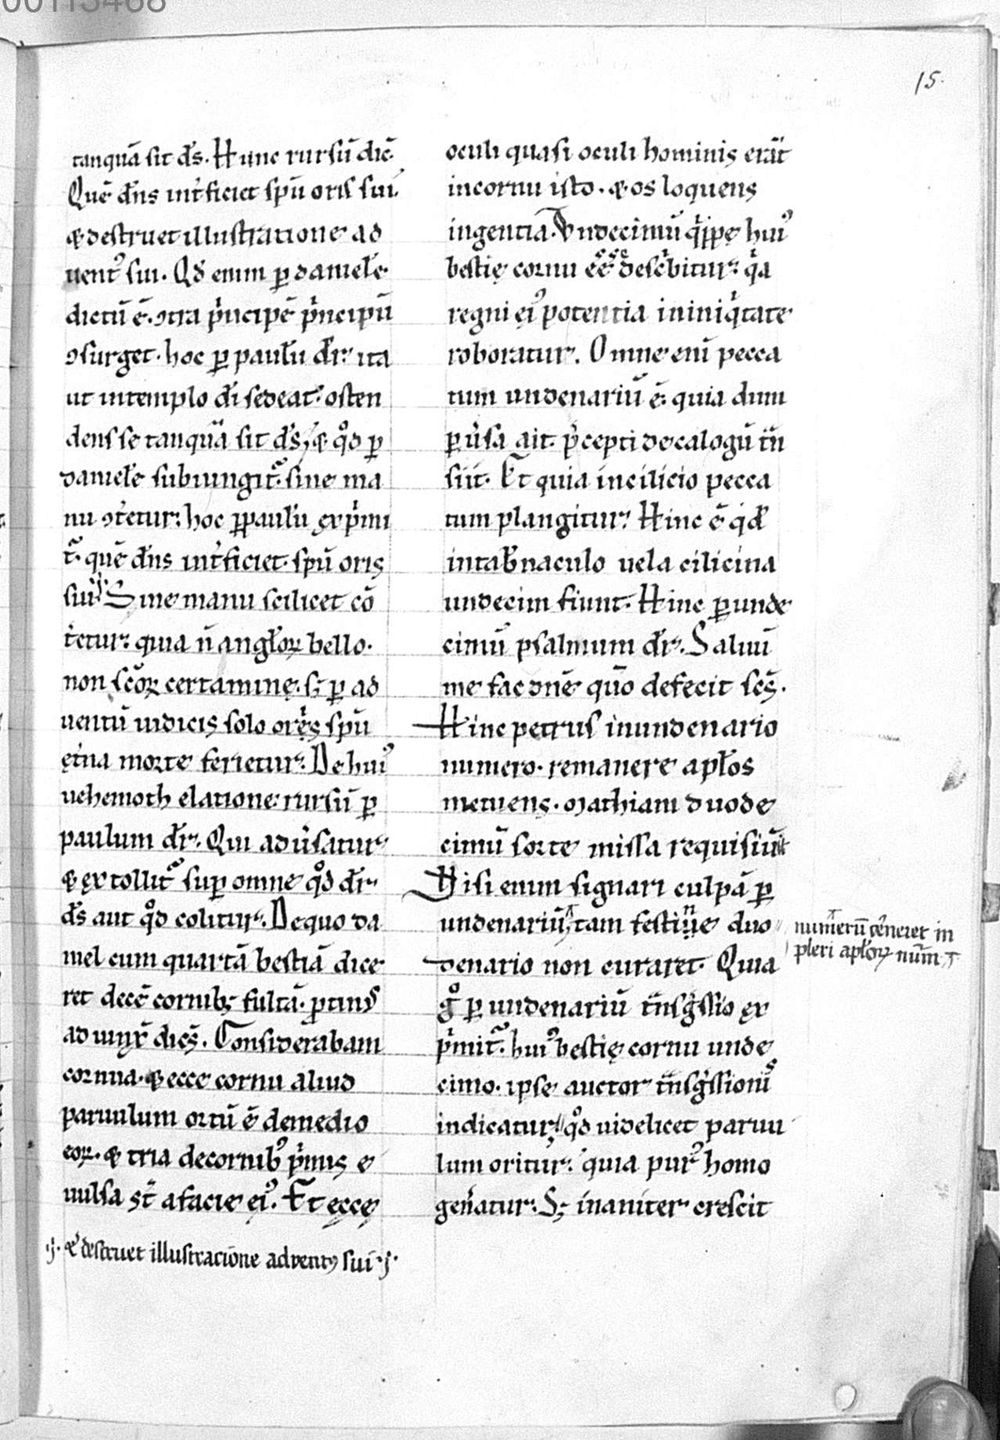 00113468
15.
tanquā sit d̄s. Hunc rursū dic̄.
Quē dn̄s int̾ficiet spū oris sui.
⁊ destruet illustratione ad
uent᾿ sui. Qd̄ enim ꝑ daniele᷒
dictū ē. ↄtra pͥncipē pͥncipū
ↄsurget. hoc ꝑ paulū dr̄. ita
ut intemplo dī sedeat. osten
dens se tanquā sit d̄s. ⁊ qͦd ꝑ
daniele subiungit᷒. sine ma
nu ↄt̾etur. hoc ꝑ paulū expͥmi
t᷒. quē dn̄s int̾ficiet. spū oris
sui. Sine manu scilicet cō
t̾etur. quia n̄ angl̄oꝝ bello.
non sc̄oꝝ certamine. sꝫ ꝑ ad
uentū iudicis solo oris spū
et̾na morte ferietur. De hui᾿
uehemoth elatione. rursū ꝑ
paulum dr̄. Qui adu̾satur
⁊ extollit᷒ super omne qͦd dr̄
d̄s aut qͦd colitur. De quo da
niel cum quartā bestiā dice
ret decē cornibꝫ fultā. ꝓtinus
adiunx̄ dicēs. Considerabam
cornua. ⁊ ecce cornu aliud
paruulum ortū ē demedio
eoꝝ. ⁊ tria decornibꝫ pͥmis e
uulsa st̄ afacie ei᾿. Et ecce
⁊ destruet illustracione adventꝰ sui
oculi quasi oculi hominis erāt
incornu isto. ⁊ os loquens
ingentia. Vndecimū qͥppe hui᾿
bestie cornu ēē descͥbitur. qͥa
regni ei᾿ potentia ininiqͥtate
roboratur. Omne eni pecca
tum undenariū ē. quia dum
ꝑuersa agit. p̄cepti decalogū tn̄
siit. Et quia incilicio pecca
tum plangitur. Hinc ē qͥd
intab̄naculo uela cilicina
undecim fiunt. Hinc ꝑ unde
cimū psalmum dr̄. Saluū
me fac dn̄e quō defecit scs̄.
Hinc petrus inundenario
numero. remanere apl̄os
metuens. mathiam duode
cimū sorte missa requisiuit
Nisi enim signari culpā ꝑ
undenariū tam festine duo
denario non curaret. Quia
gͦ ꝑ undenariū tn̄sgͥssio ex
pͥmit᷒. hui᾿ bestie cornu unde
cimo. ipse auctor tn̄sgͥssionis
indicatur. qͦd uidelicet paruu
lum oritur. quia pur᾿ homo
gen̾atur. Sꝫ inaniter crescit
numerū cerneret in
pleri apl̄oꝝ num̄